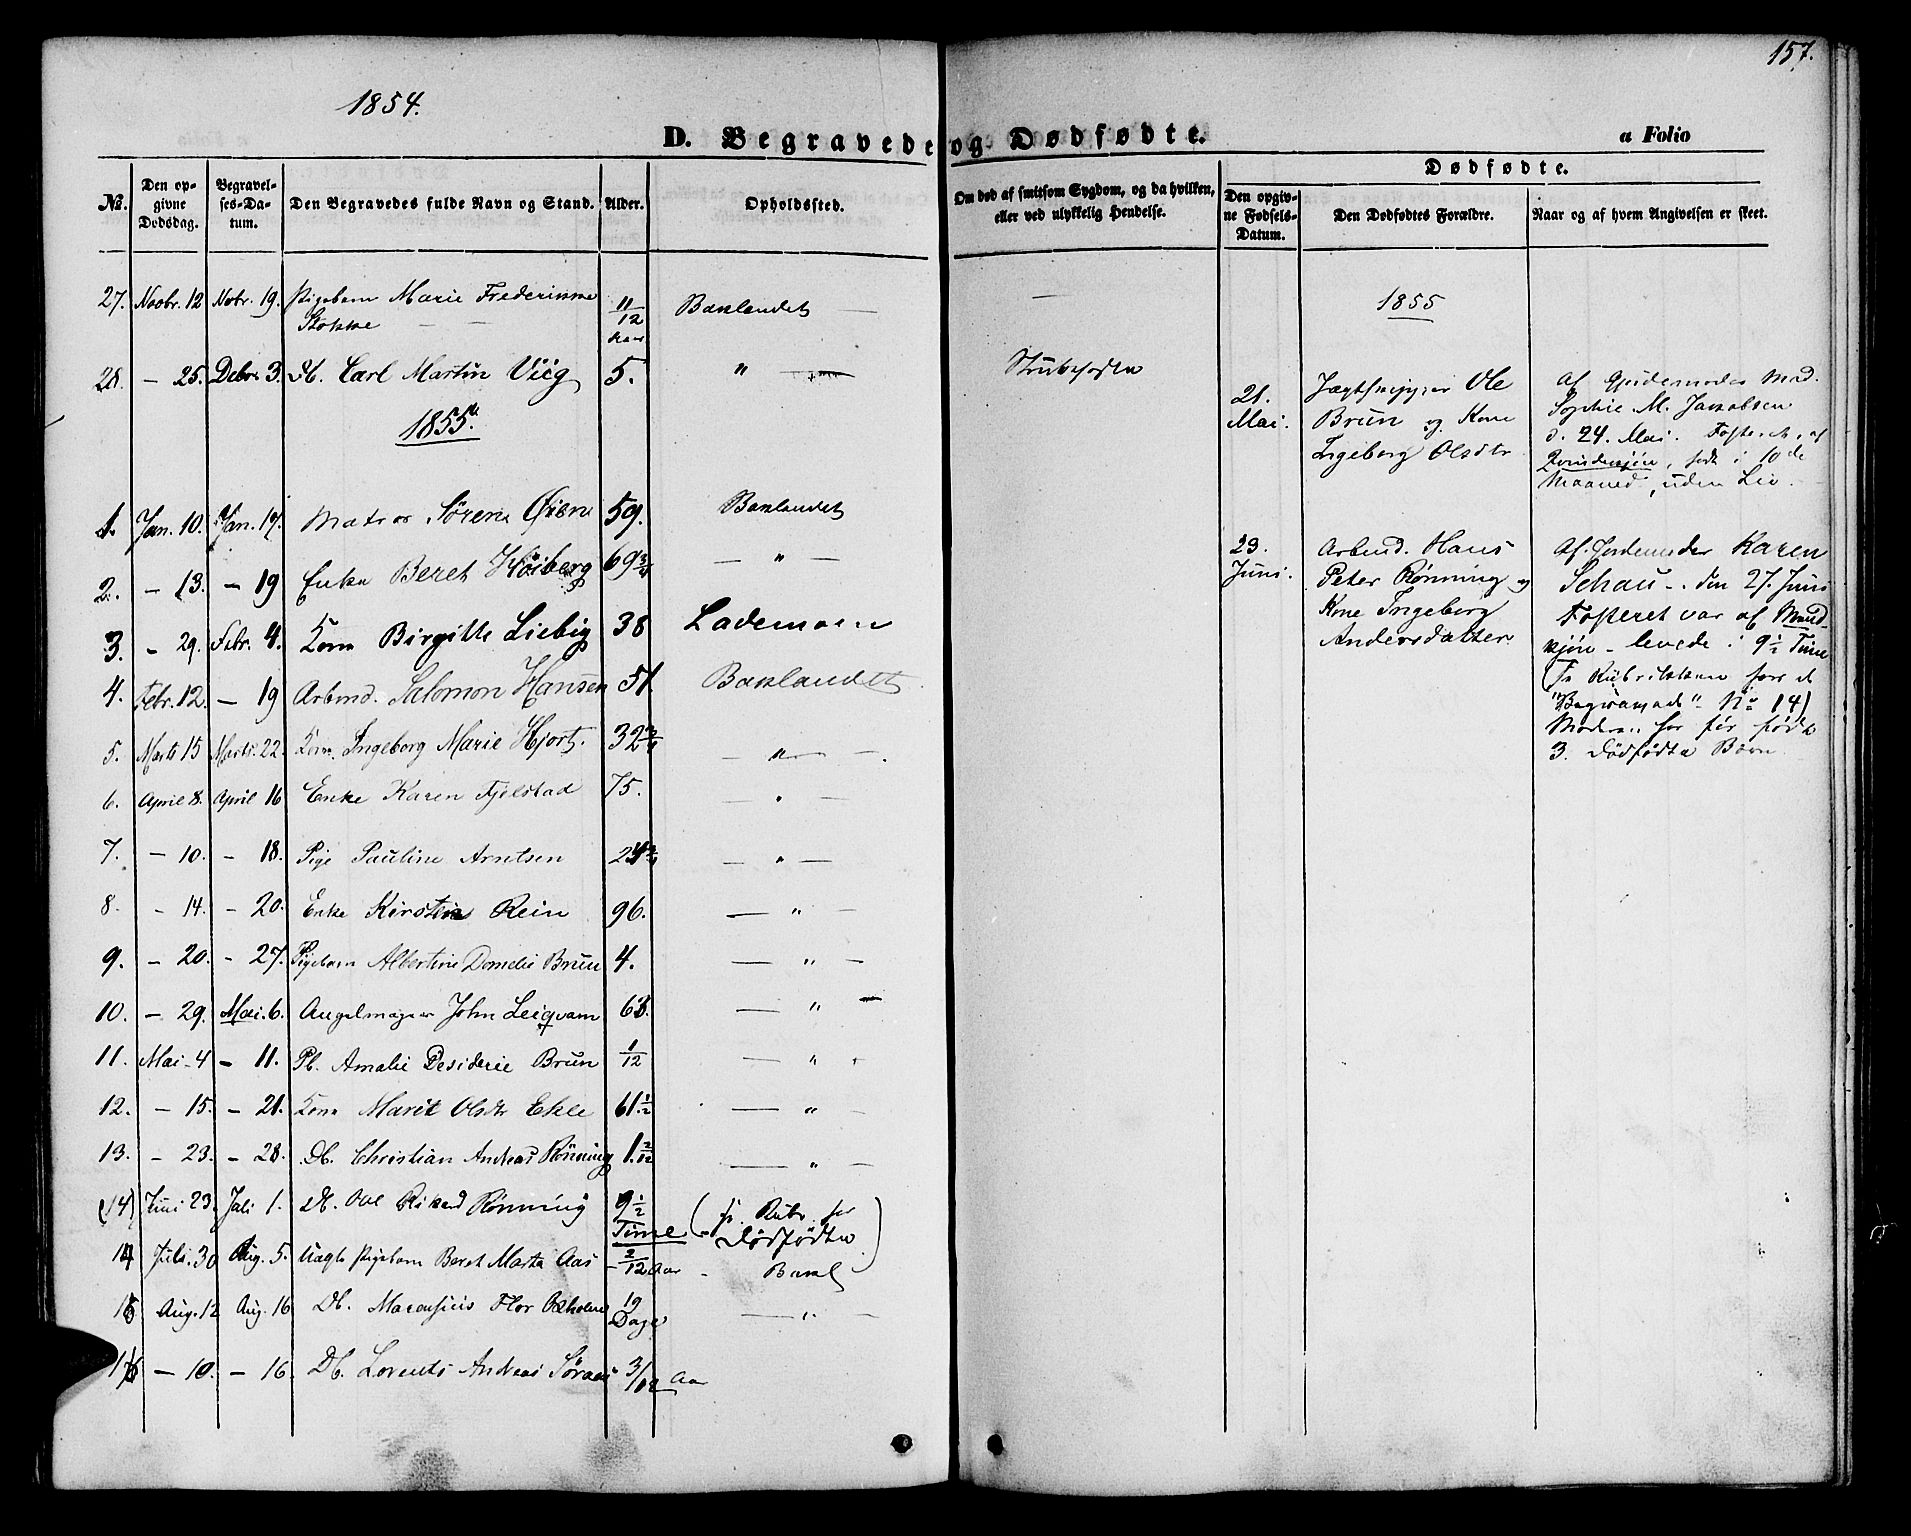 157.
1854.
D. Begravede og Dødfødte.
a Folio
No.
Den opgivne Dødsdag.
Begravelses-Datum.
Den Begravedes fulde Navn og Stand.
Alder.
Opholdssted.
Om død af smitsom Sygdom, og da hvilken, eller ved ulykkelig Hendelse.
Dødfødte.
Den opgivne Fødsels-Datum.
Den Dødfødtes Forældre.
Naar og af hvem Angivelsen er skeet.
27. Novbr. 12 Novbr. 19. Pigebarn Marie Frederikke Stokke — — 11/12 Aar Baklandet — —
28. — 25. Debr. 3. Db. Carl Martin Viig 5. " — Strubehoste
1855.
1. Jan. 10. Jan. 17. Matros Sørene Øiene 59. Baklandet
2. — 13. — 19 Enke Beret Høiberg 69 3/4 — " —
3. — 29. Febr. 4. Kone Birgitte Liebig 38 Lademoen
4. Febr. 12. — 19 Arbmd. Salomon Hansen 51. Baklandet
5. Marts 15 Marts 22. Kone Ingeborg Marie Hjort. 32 3/4 — " — .
6. April 8. April 16 Enke Karen Fjelstad 75. — " —
7. — 10. — 18. Pige Pauline Arntsen 24 — " —
8. — 14. — 20. Enke Kirstine Rein 96. — " —
9. — 20. — 27. Pigebarn Albertine Dornelie Brun 4. — " —
10. — 29. Mai. 6. Angelmager John Leiqvam 63. — " —
11. Mai. 4 — 11. Pb. Amalie Desiderie Brun 1/12 — " —
12. — 15. — 21. Kone Marit Olsdtr Ekle 61 1/2 — " —
13. — 23. — 28. Db. Christian Andreas Rönning 1 2/12 — " —
(14) Juni 23. Juli 1. Db. Ole Rikard Rönning 9 1/2 Time (fr. Rubr. for Dødfødte)
14 Juli. 30 Aug. 5. Uægte Pigebarn Beret Marta Aas 2/12 Aar Bakl
15 Aug. 12 Aug. 16 Db. Flor 19 Dage — " —
16 — 10. — 16. Db. Lorents Andreas 3/12 Aar
1855
21. Mai. Jægtskipper Ole
Brun og Kone
Ingeborg Olsdtr
Af Gjordemoder Mad.
Sophie M. Jakobsen
d. 24. Mai. Fosteret, af
Qvindekjön, födt i 10de
Maaned, uden Liv.
23. Juni. Arbmd. Hans
Peter Rönning og
Kone Ingeborg
Andersdatter
Af Jordemoder Karen
Schau - den 27. Juni
Fosteret var af Mandkjön
- levede i 9 1/2 Time
(Fr Rubrikken for de
"Begravede" No 14)
Moderen har för födt
3. Dödfödte Börn